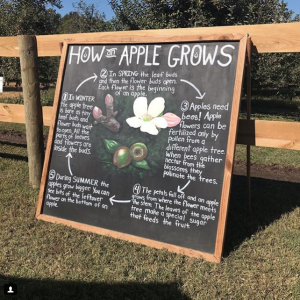 HOW AN APPLE GROWS
① In WINTER
the apple tree
is bare as tiny
leaf buds and
flower buds wait
to open. All the
parts of leaves
and flowers are
inside the buds.
② In SPRING the leaf buds
and then the flower buds open.
Each flower is the beginning
of an apple.
③ Apples need
bees! Apple
flowers can be
fertilized only by
pollen from a
different apple tree
When bees gather
nectar from the
blossoms they
pollinate the trees.
④ The petals fall off and an apple
grows from where the flower meets
the stem. The leaves of the apple
tree make a special sugar
that feeds the fruit.
⑤ During SUMMER the
apples grow bigger. You can
see bits of the leftover
flower on the bottom of an
apple.